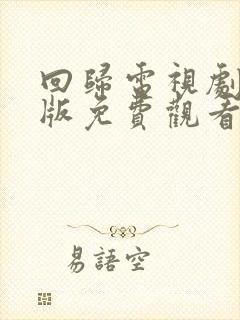 回歸雷視劇
版免費觀看
易語空